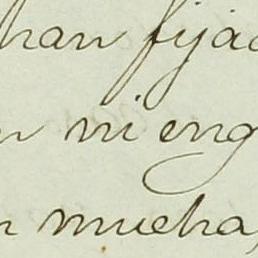 han fija
n ni eng
n mucha,